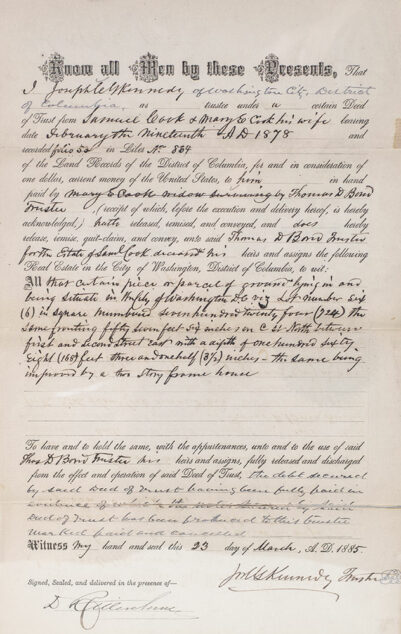 Know all Men by these Presents, That
I Joseph C G Kennedy of Washington City, District
of Columbia, as trustee under a certain Deed
of Trust from Samuel Cook & Mary E Cook his wife bearing
date February the Nineteenth A D 1878 and
recorded folio 50 in Liber No 884
of the Land Records of the District of Columbia, for and in consideration of
one dollar, current money of the United States, to him in hand
paid by Mary E Cook widow surviving by Thomas D Bond
Trustee, (receipt of which, before the execution and delivery hereof, is hereby
acknowledged,) hath released, remised, and conveyed, and does hereby
release, remise, quit-claim, and convey, unto said Thomas D Bond Trustee
for the Estate of Saml Cook deceased his heirs and assigns the following
Real Estate in the City of Washington, District of Columbia, to wit:
All that certain piece or parcel of ground lying in and
being situate in the City of Washington D C viz Lot number Six
(6) in square numbered seven hundred twenty four (724) the
same fronting fifty seven feet six inches on C St North between
first and second street East with a depth of one hundred sixty
eight (168) feet three and one half (3½) inches – the same being
improved by a two story frame house
To have and to hold the same, with the appurtenances, unto and to the use of said
Thos D Bond Trustee his heirs and assigns, fully released and discharged
from the effect and operation of said Deed of Trust, the debt secured
by said Deed of Trust having been fully paid in
evidence of which the notes secured by said
Deed of Trust has been produced to this trustee
marked paid and cancelled
Witness my hand and seal this 23 day of March, A. D. 1885.
Jos C G Kennedy Trustee
Signed, Sealed, and delivered in the presence of—